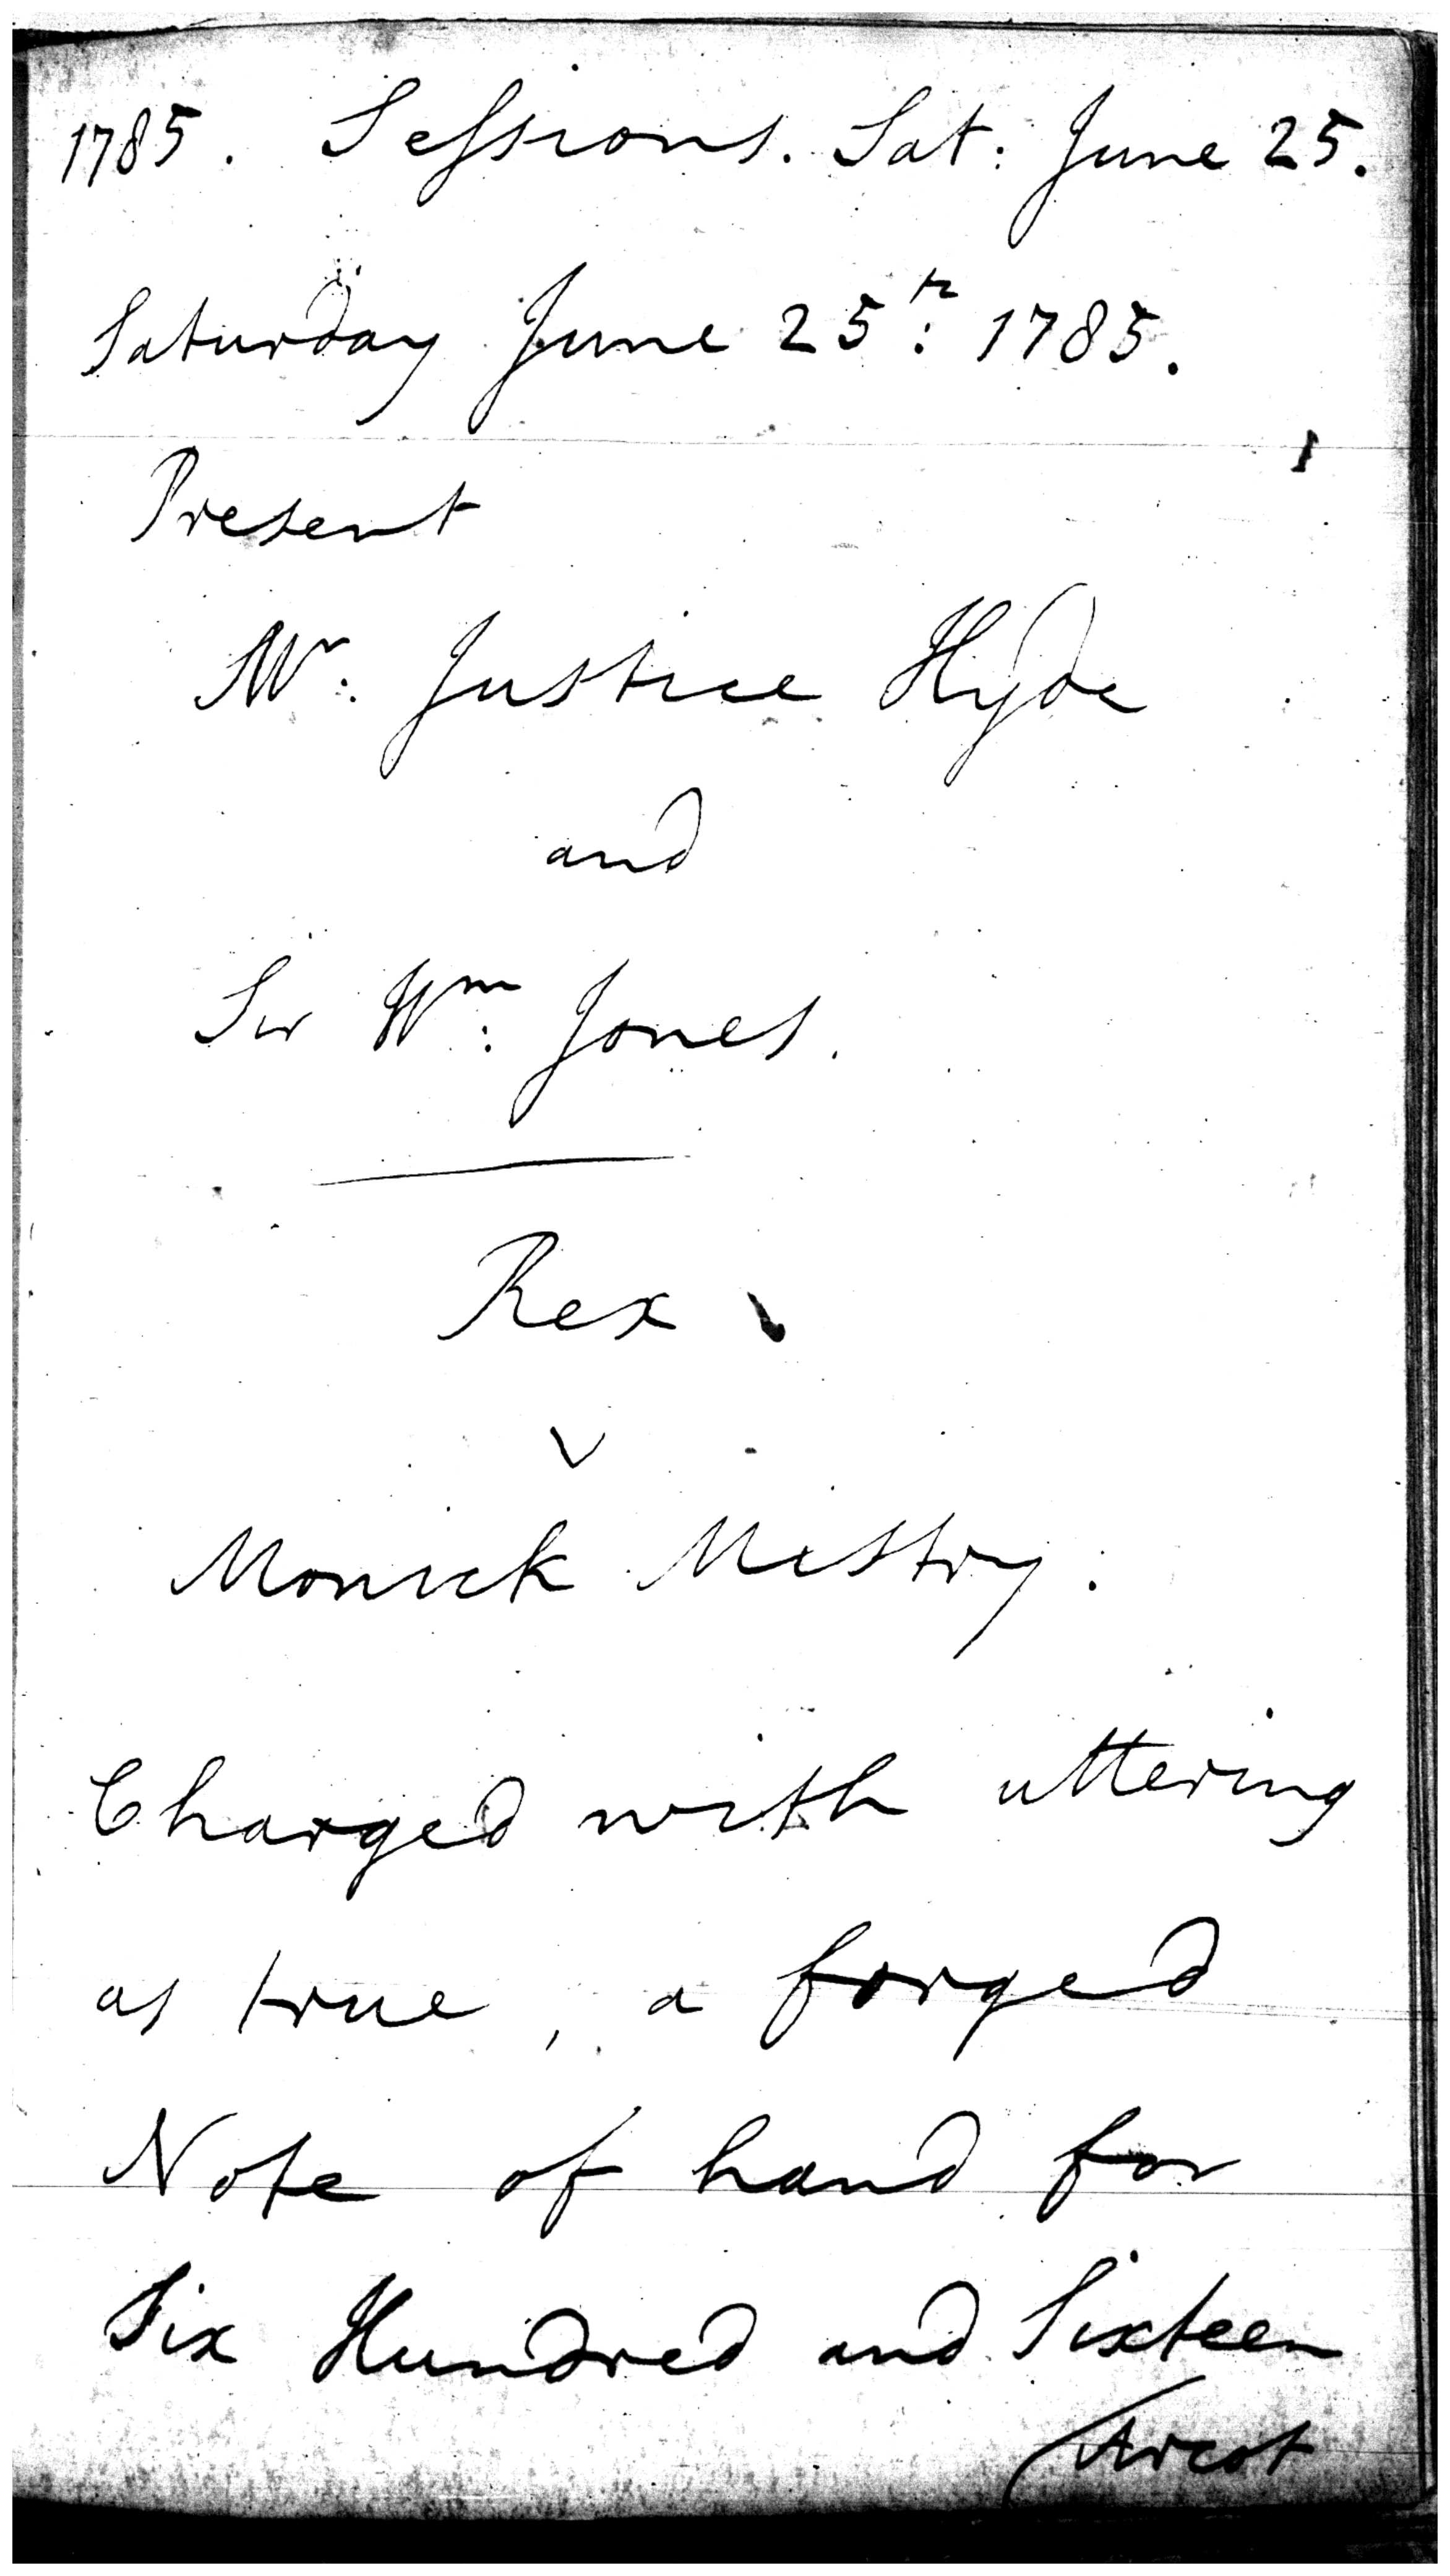 1785. Sessions. Sat: June 25.
Saturday June 25th: 1785.
Present
Mr: Justice Hyde
and
Sir Wm: Jones.
Rex
v
Monick Mistry.
Charged with uttering
as true, a forged
Note of hand for
Six Hundred and Sixteen
Arcot